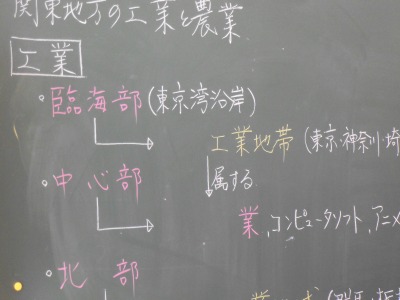 関東地方の工業と農業
工業
・臨海部(東京湾沿岸)
工業地帯(東京・神奈川・埼
・中心部
属する
業,コンピュータソフト,アニメ
・北部
業